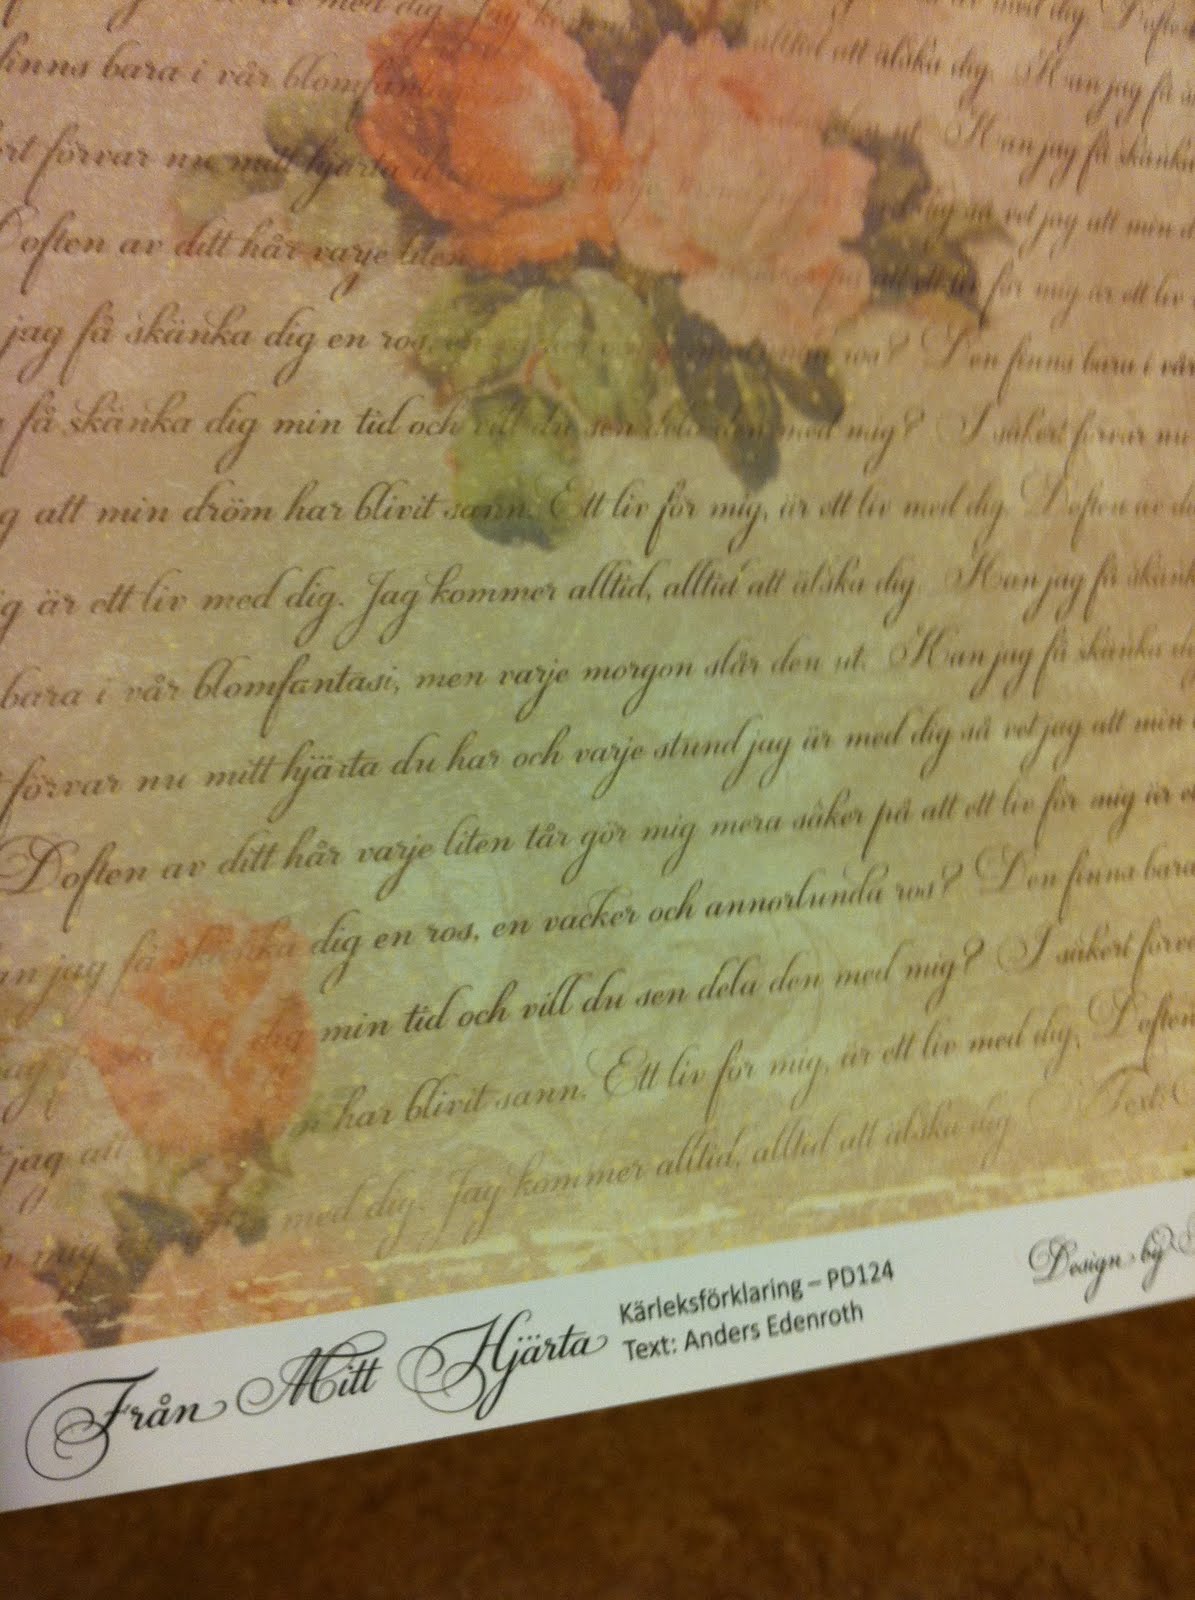 med dig. Jag
alltid att älska dig. Kan jag få
finns bara i vår blomfantasi
ut. Kan jag få skänka
förvar nu mitt hjärta
dig så vet jag att min
Doften av ditt hår varje liten
på att ett liv för mig är ett liv
jag få skänka dig en ros, en ros? Den finns bara i vår
få skänka dig min tid och vill du sen dela den med mig? I säkert förvar nu
att min dröm har blivit sann. Ett liv för mig, är ett liv med dig. Doften av
är ett liv med dig. Jag kommer alltid, alltid att älska dig. Kan jag få skänka
bara i vår blomfantasi, men varje morgon slår den ut. Kan jag få skänka
förvar nu mitt hjärta du har och varje stund jag är med dig så vet jag att min
Doften av ditt hår varje liten tår gör mig mera säker på att ett liv för mig är
jag få skänka dig en ros, en vacker och annorlunda ros? Den finns bara
dig min tid och vill du sen dela den med mig? I säkert
jag att har blivit sann. Ett liv för mig, är ett liv med dig. Doften
mig med dig. Jag kommer alltid, alltid att älska dig. Text:
Från Mitt Hjärta
Kärleksförklaring – PD124
Text: Anders Edenroth
Design by